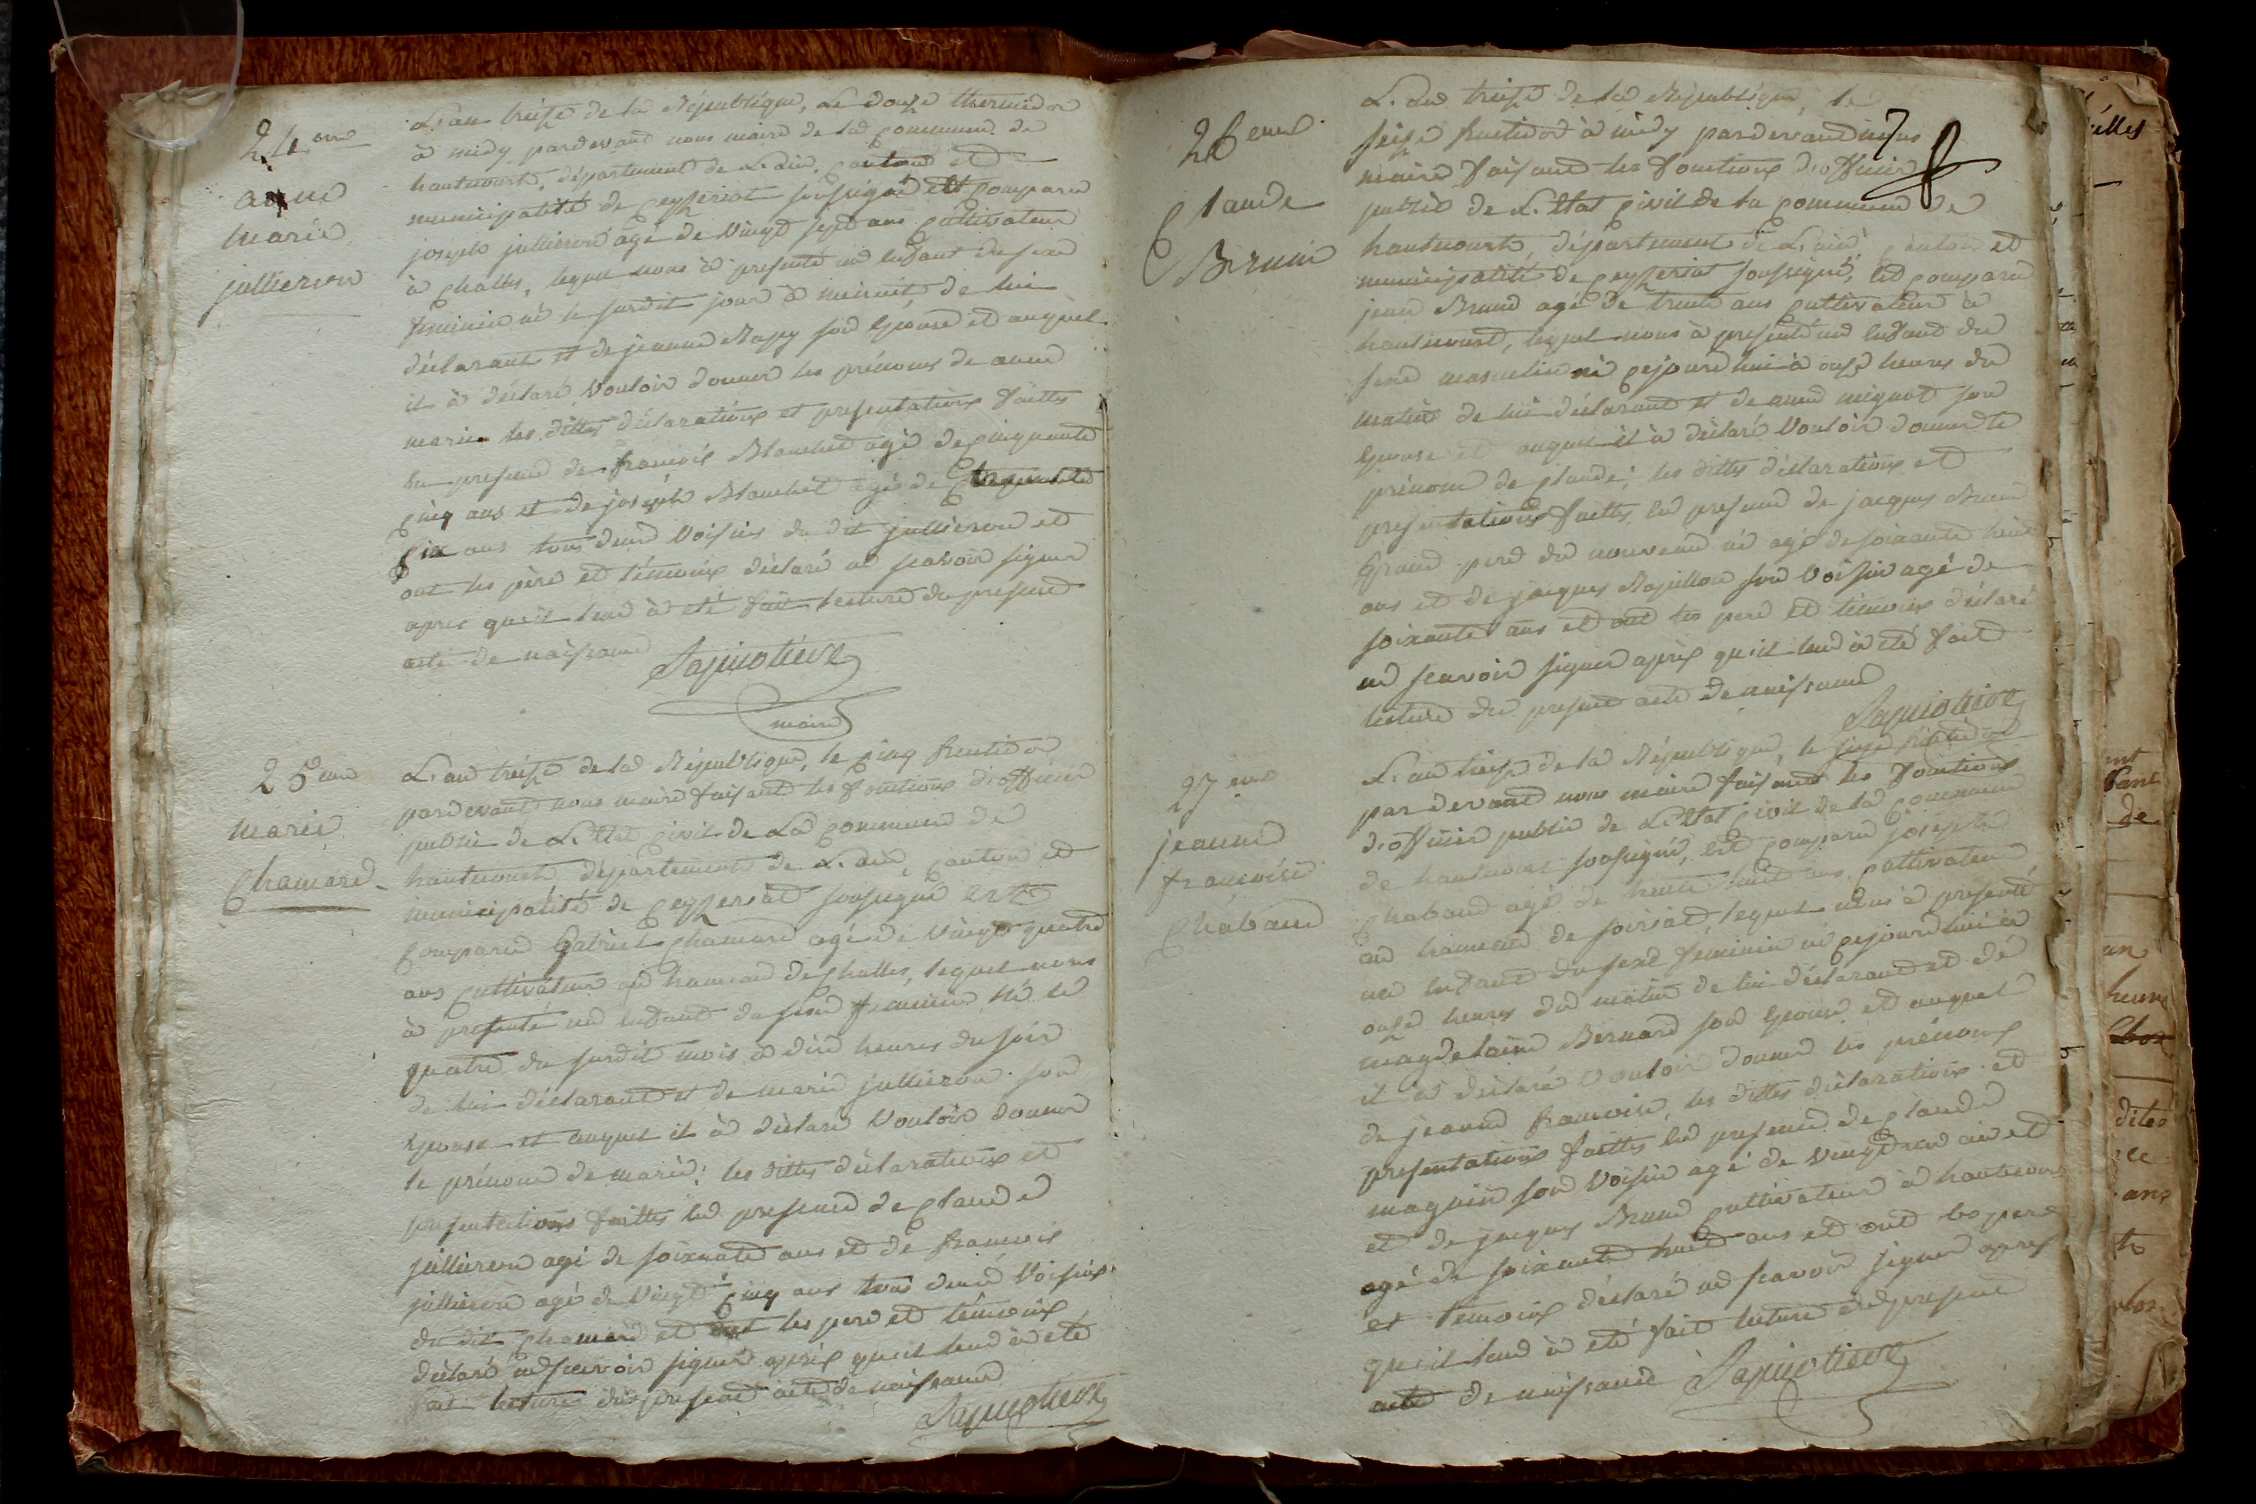 24eme
anne
marie
jullieron
L'an treize de la République, Le douze thermidor
à midy pardevant nous maire de la commune de
hautecourt, département de L'ain, canton et
municipalité de ceyzeriat soussigné est comparu
joseph jullieron agé de vingt sept ans cultivateur
à challes, lequel nous à présenté un enfant du sexe
feminin né le susdit jour à minuit de lui
déclarant et de jeanne Rapy son Epouse et auquel
il à déclaré vouloir donner les prénoms de anne
marie les dittes déclarations et presentations faittes
en presence de françois Blanchet agé de cinquante
cinq ans et de joseph Blanchet agé de cinquante
six ans tous deux voisins du dit jullieron et
ont les père et témoins déclaré ne scavoir signer
apres qu'il leur à eté fait lecture du present
acte de naissance
maire
25eme
marie
Chamard
L'an treize de la République, le cinq fructidor
pardevant nous maire faisant les fonctions d'officier
public de L'Etat civil de La commune de
hautecourt département de L'ain, canton et
municipalité de ceyzeriat soussigné est
comparu Gabriel chamard agé de vingt quatre
ans cultivateur au hameau de challes, lequel nous
à presenté un enfant du sexe feminin né le
quatre du susdit mois à dix heures du soir
de lui déclarant et de marie jullieron son
Epouse et auquel il à déclaré vouloir donner
le prénom de marie; les dittes déclarations et
presentations faittes en presence de claude
jullieron agé de soixante ans et de francois
jullieron agé de vingt cinq ans tous deux voisins
du dit chamard et ont les pere et témoins
déclaré ne scavoir signer après qu'il leur à eté
fait lecture du present acte de naissance
26eme
Claude
Brun
L'an treize de la République, le
seize fructidor à midy pardevant nous
maire faisant les fonctions d'officier
public de L'Etat civil de la commune de
hautecourt, département de L'ain, canton et
municipalité de ceyzeriat soussigné, est comparu
jean Brun agé de trente ans cultivateur à
hautecourt, lequel nous à presenté un enfant du
sexe masculin né cejourd'hui à onze heures du
matin de lui déclarant et de anne mignot son
Epouse et auquel il à déclaré vouloir donner le
prénom de claude; les dittes déclarations et
presentations faittes, en presence de jacques Brun
Grand pere du nouveau né agé de soixante huit
ans et de jacques Rapillon son voisin agé de
soixante ans et ont les pere et témoins déclaré
ne scavoir signer après qu'il leur à eté fait
lecture du present acte de naissance
27eme
jeanne
francoise
Chabaud
L'an treize de la République, le seize fructidor
par devant nous maire faisant les fonctions
d'officier public de L'Etat civil de la commune
de hautecourt soussigné, est comparu joseph
Chabaud agé de trente huit ans, cultivateur
au hameau de soiriat, lequel nous à presenté
un enfant du sexe féminin né cejourd'hui à
onze heures du matin de lui déclarant et de
magdelaine Bernard son Epouse et auquel
il à déclaré vouloir donner les prénoms
de jeanne francoise, les dittes déclarations et
presentations faittes en presence de claude
magnin son voisin agé de vingt un an et
et de jacques Brun cultivateur à hautecourt
agé de soixante huit ans et ont les pere
et temoins déclaré ne scavoir signer apres
qu'il leur à eté fait lecture du present
acte de naissance